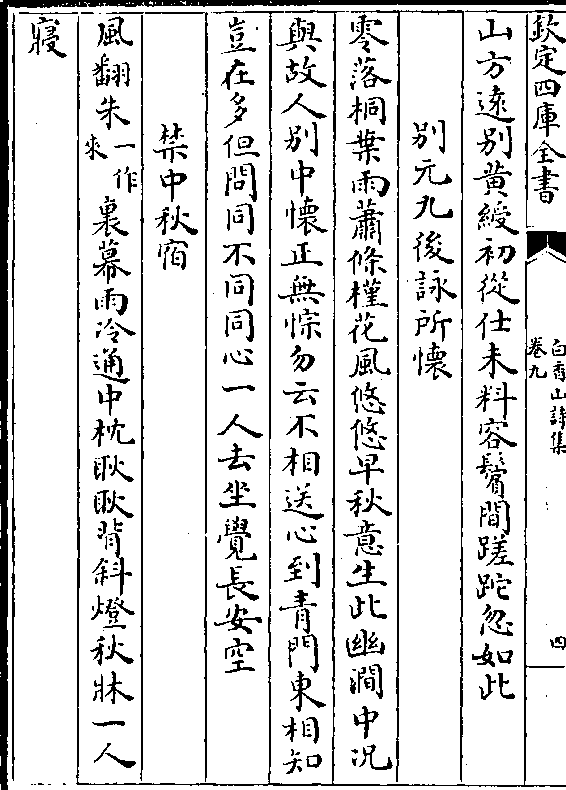 欽定四庫全書
白香山詩集
卷九
四
山方遠別黄綬初從仕未料容鬢間蹉跎忽如此
別元九後詠所懷
零落桐葉雨蕭條槿花風悠悠早秋意生此幽澗中况
與故人別中懷正無悰勿云不相送心到青門東相知
豈在多但問同不同同心一人去坐覺長安空
禁中秋宿
風翻朱一作來裏幕雨冷通中枕耿耿背斜燈秋牀一人
寢